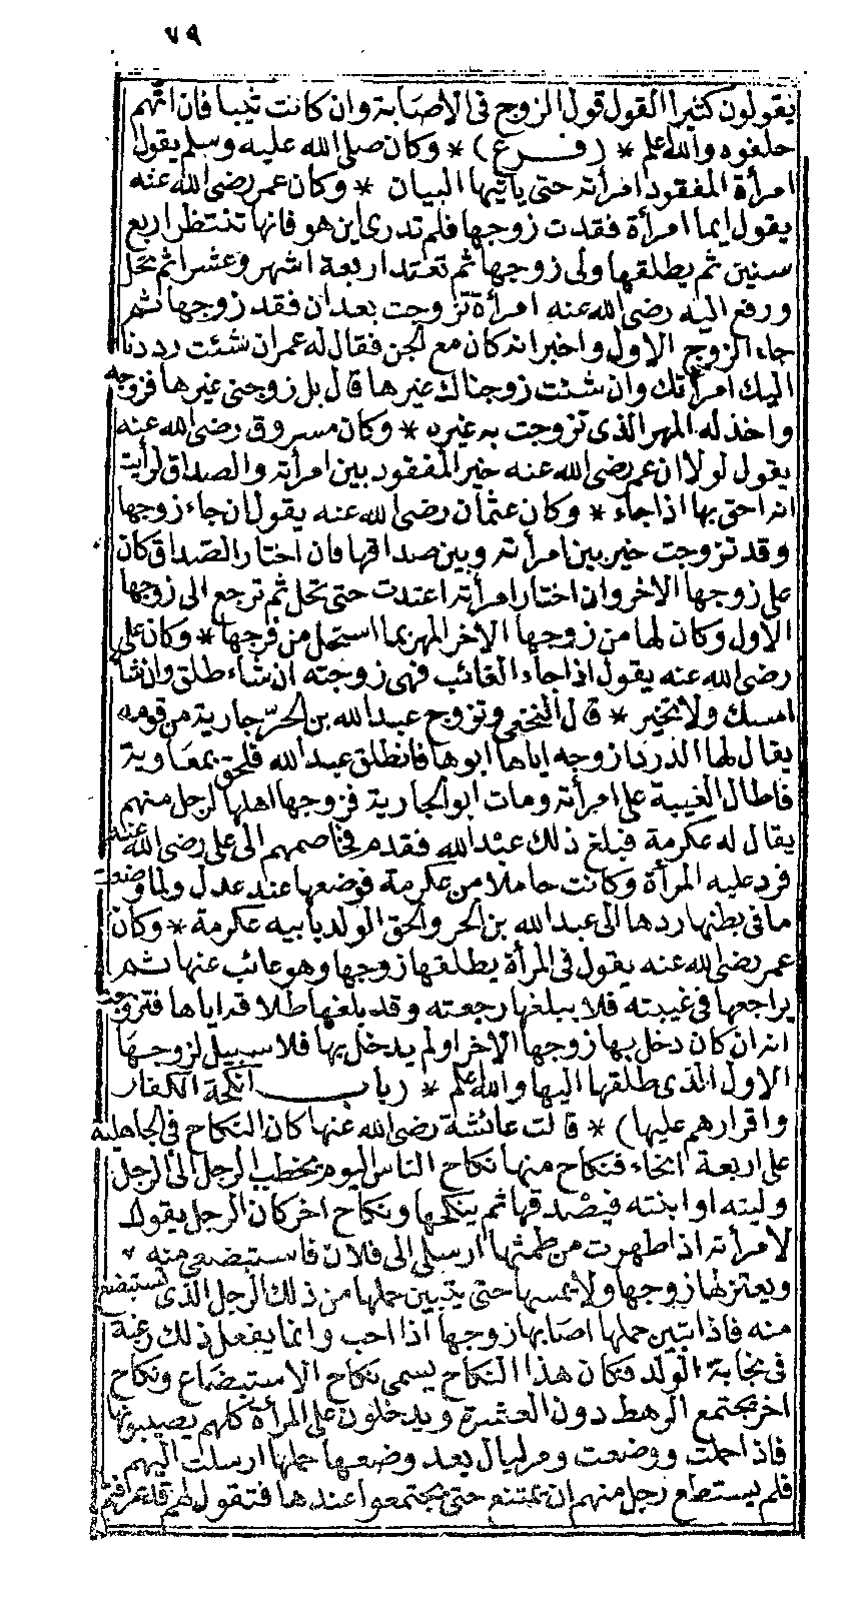 ٧٩
يقولون كثيرا القول قول الزوج فى الاصابة وان كانت ثيبا فان اتهم
حلفوه والله اعلم * (فـــرع) * وكان صلى الله عليه وسلم يقول
امرأة المفقود امرأته حتى يأتيها البيان * وكان عمر رضى الله عنه
يقول ايما امرأة فقدت زوجها فلم تدرى اين هو فانها تنتظر اربع
سنين ثم يطلقها ولى زوجها ثم تعتد اربعة اشهر وعشرا ثم تحل
ورفع اليه رضى الله عنه امرأة تزوجت بعد ان فقد زوجها ثم
جاء الزوج الاول واخبر انه كان مع الجن فقال له عمر ان شئت رددنا
اليك امرأتك وان شئت زوجناك غيرها قال بل زوجنى غيرها فزوجه
واخذ له المهر الذى تزوجت به غيره * وكان مسروق رضى الله عنه
يقول لولا ان عمر رضى الله عنه خير المفقود بين امرأته والصداق لرأيت
انه احق بها اذا جاء * وكان عثمان رضى الله عنه يقول ان جاء زوجها
وقد تزوجت خير بين امرأته وبين صداقها فان اختار الصداق كان
على زوجها الاخر وان اختار امرأته اعتدت حتى تحل ثم ترجع الى زوجها
الاول وكان لها من زوجها الاخر المهر بما استحل من فرجها * وكان على
رضى الله عنه يقول اذا جاء الغائب فهى زوجته ان شاء طلق وان شاء
امسك ولا تخير * قال النخعى وتزوج عبد الله بن الحر جارية من قومه
يقال لها الدردا زوجه اياها ابوها فانطلق عبد الله فلحق بمعاوية
فاطال الغيبة على امرأته ومات ابو الجارية فزوجها اهلها لرجل منهم
يقال له عكرمة فبلغ ذلك عبد الله فقدم فخاصمهم الى على رضى الله عنه
فرد عليه المرأة وكانت حاملا من عكرمة فوضعها عند عدل ولما وضعت
ما فى بطنها ردها الى عبد الله بن الحر والحق الولد بابيه عكرمة * وكان
عمر رضى الله عنه يقول فى المرأة يطلقها زوجها وهو غائب عنها ثم
يراجعها فى غيبته فلا يبلغها رجعته وقد بلغها طلاقه اياها فتزوجت
انه ان كان دخل بها زوجها الاخر او لم يدخل بها فلا سبيل لزوجها
الاول الذى طلقها اليها والله اعلم * (بـاب انكحة الكفار
واقرارهم عليها) * قالت عائشة رضى الله عنها كان النكاح فى الجاهلية
على اربعة انحاء فنكاح منها نكاح الناس اليوم يخطب الرجل الى الرجل
وليته او ابنته فيصدقها ثم ينكحها ونكاح اخر كان الرجل يقول
لامرأته اذا طهرت من طمثها ارسلى الى فلان فاستبضعى منه
ويعتزلها زوجها ولا يمسها حتى يتبين حملها من ذلك الرجل الذى تستبضع
منه فاذا تبين حملها اصابها زوجها اذا احب وانما يفعل ذلك رغبة
فى نجابة الولد فكان هذا النكاح يسمى نكاح الاستبضاع ونكاح
اخر يجتمع الرهط دون العشرة ويدخلون على المرأة كلهم يصيبونها
فاذا حملت ووضعت ومر ليال بعد وضعها حملها ارسلت اليهم
فلم يستطع رجل منهم ان يمتنع حتى يجتمعوا عندها فتقول لهم قد عرفتم